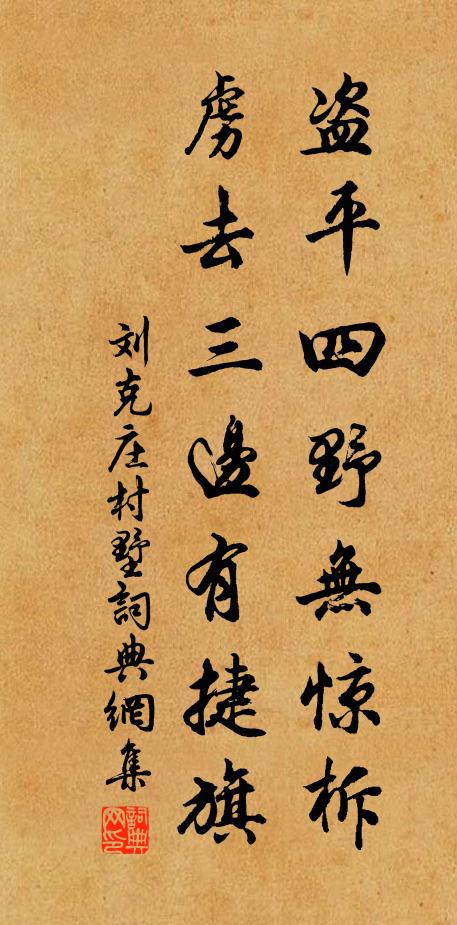 盗平四野無惊柝
虏去三邊有捷旗
刘克庄村墅詞典網集
詞典網印